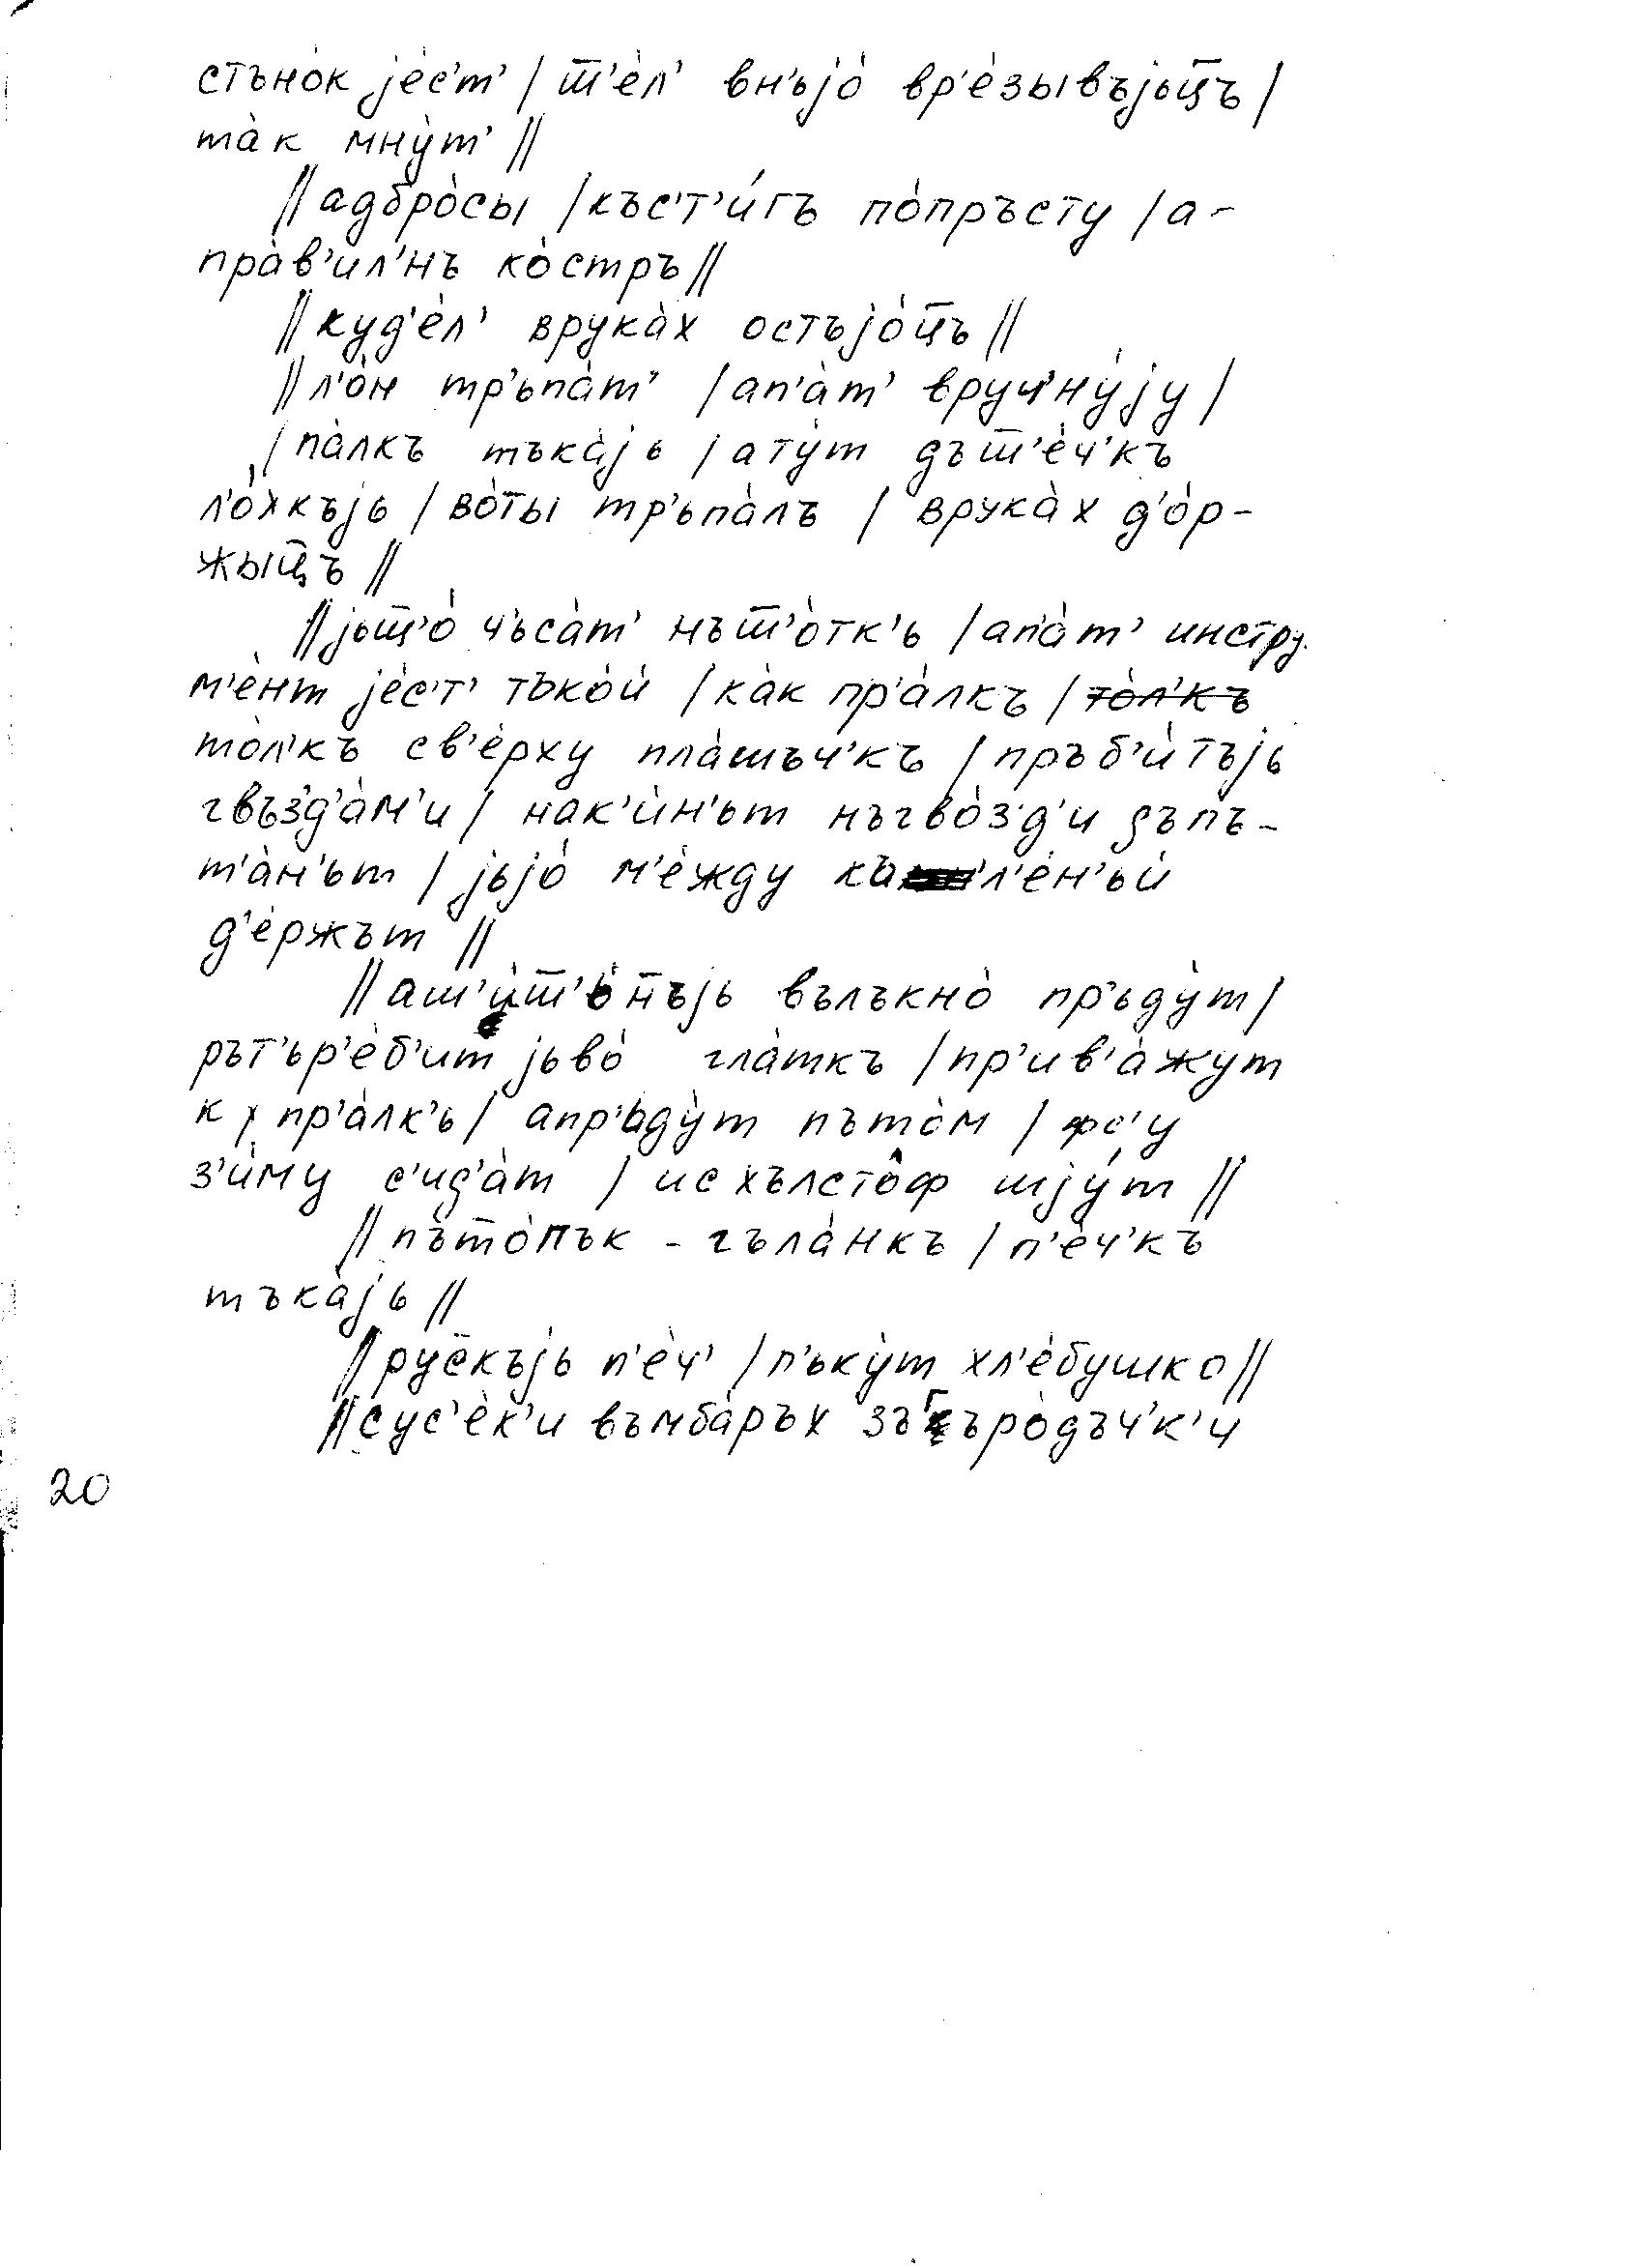 стъно́к jе́с'т' / ш̅'е́л' вн'ьjо́ вр'е́зывъjьц̅ъ /
та̀к мну́т' //
// адбро́сы / къс'т'и́гъ по́пръсту / а-
пра́в'ил'нъ ко́стръ //
// куд'е́л' врука́х остъjо́ц̅ъ //
// л'о́н тр'ьпа́т' / ап'а́т' вруч'ну́jу /
/ па́лкъ тъка́jь / ату́т дъш̅'е́ч'къ
л'о́хкъjь / во́т̅ы тр'ьпа́лъ / врука́х д'о́р-
жыц̅ъ //
// jьш̅'о́ ч'ьса́т' нъш̅'о́тк'ь / ап'а́т' инстру-
м'е́нт jе́с'т' тъко́й / ка́к пр'а́лкъ / то́л'къ
то́л'къ св'е́рху пла́шъч'къ / пръб'и́тъjь
гвъз'д'а́м'и / нак'и́н'ьт нъгво́з'д'и зъпъ-
т'а́н'ьт / jьjо́ м'е́жду къл'е́н'ьй
д'е́ржът //
// аш'и́ш̅'ьн̅ъjь вълъкно́ пр'ьду́т /
рът'ьр'е́б'ит jьво́ гла́ткъ / пр'ив'а́жут
к пр'а́лк'ь / апр'ьду́т пъто́м / фс'у
з'и́му с'ид'а́т / исхълсто̂ф шjу́т //
// пъто́пък - гъла́нкъ / п'е́ч'къ
тъка́jь //
// рус̅къjь п'е́ч' / п'ьку́т хл'е́бушко //
// сус'е́к'и въмба́ръх зъгъро́дъч'к'и
20